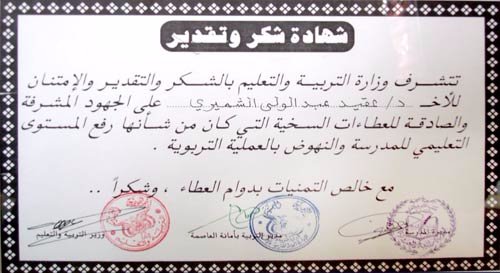 شهادة شكر وتقدير
تتشرف وزارة التربية والتعليم بالشكر والتقدير والإمتنان
للأخ د/ عقيد عبدالولي الشميري على الجهود المشرفة
والصادقة للعطاءات السخية التي كان من شأنها رفع المستوى
التعليمي للمدرسة والنهوض بالعملية التربوية .
مع خالص التمنيات بدوام العطاء ، وشكراً ..
مديرة المدرسة
مدير التربية بأمانة العاصمة
وزير التربية والتعليم